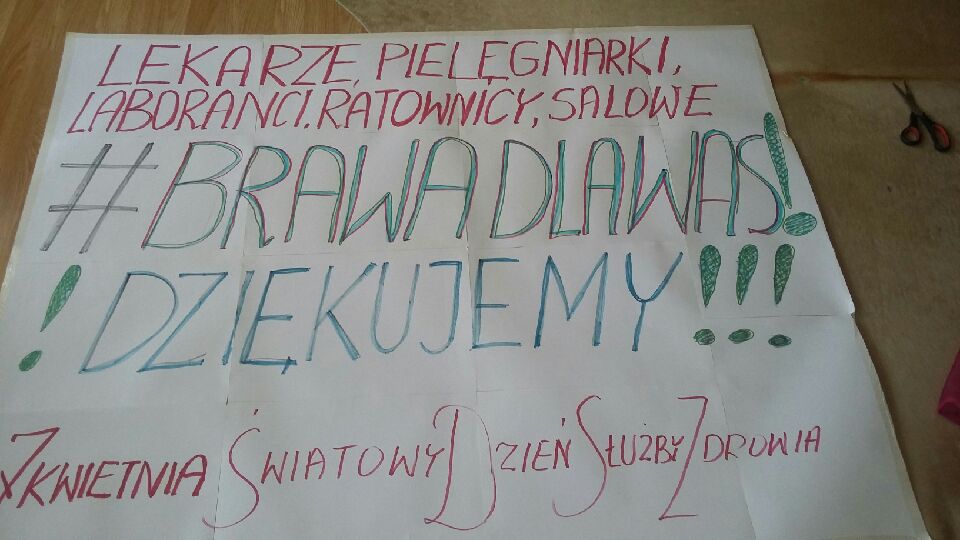 LEKARZE, PIELĘGNIARKI,
LABORANCI. RATOWNICY, SALOWE
#BRAWA DLA WAS!
! DZIĘKUJEMY !!!
7 KWIETNIA ŚWIATOWY DZIEŃ SŁUŻBY ZDROWIA